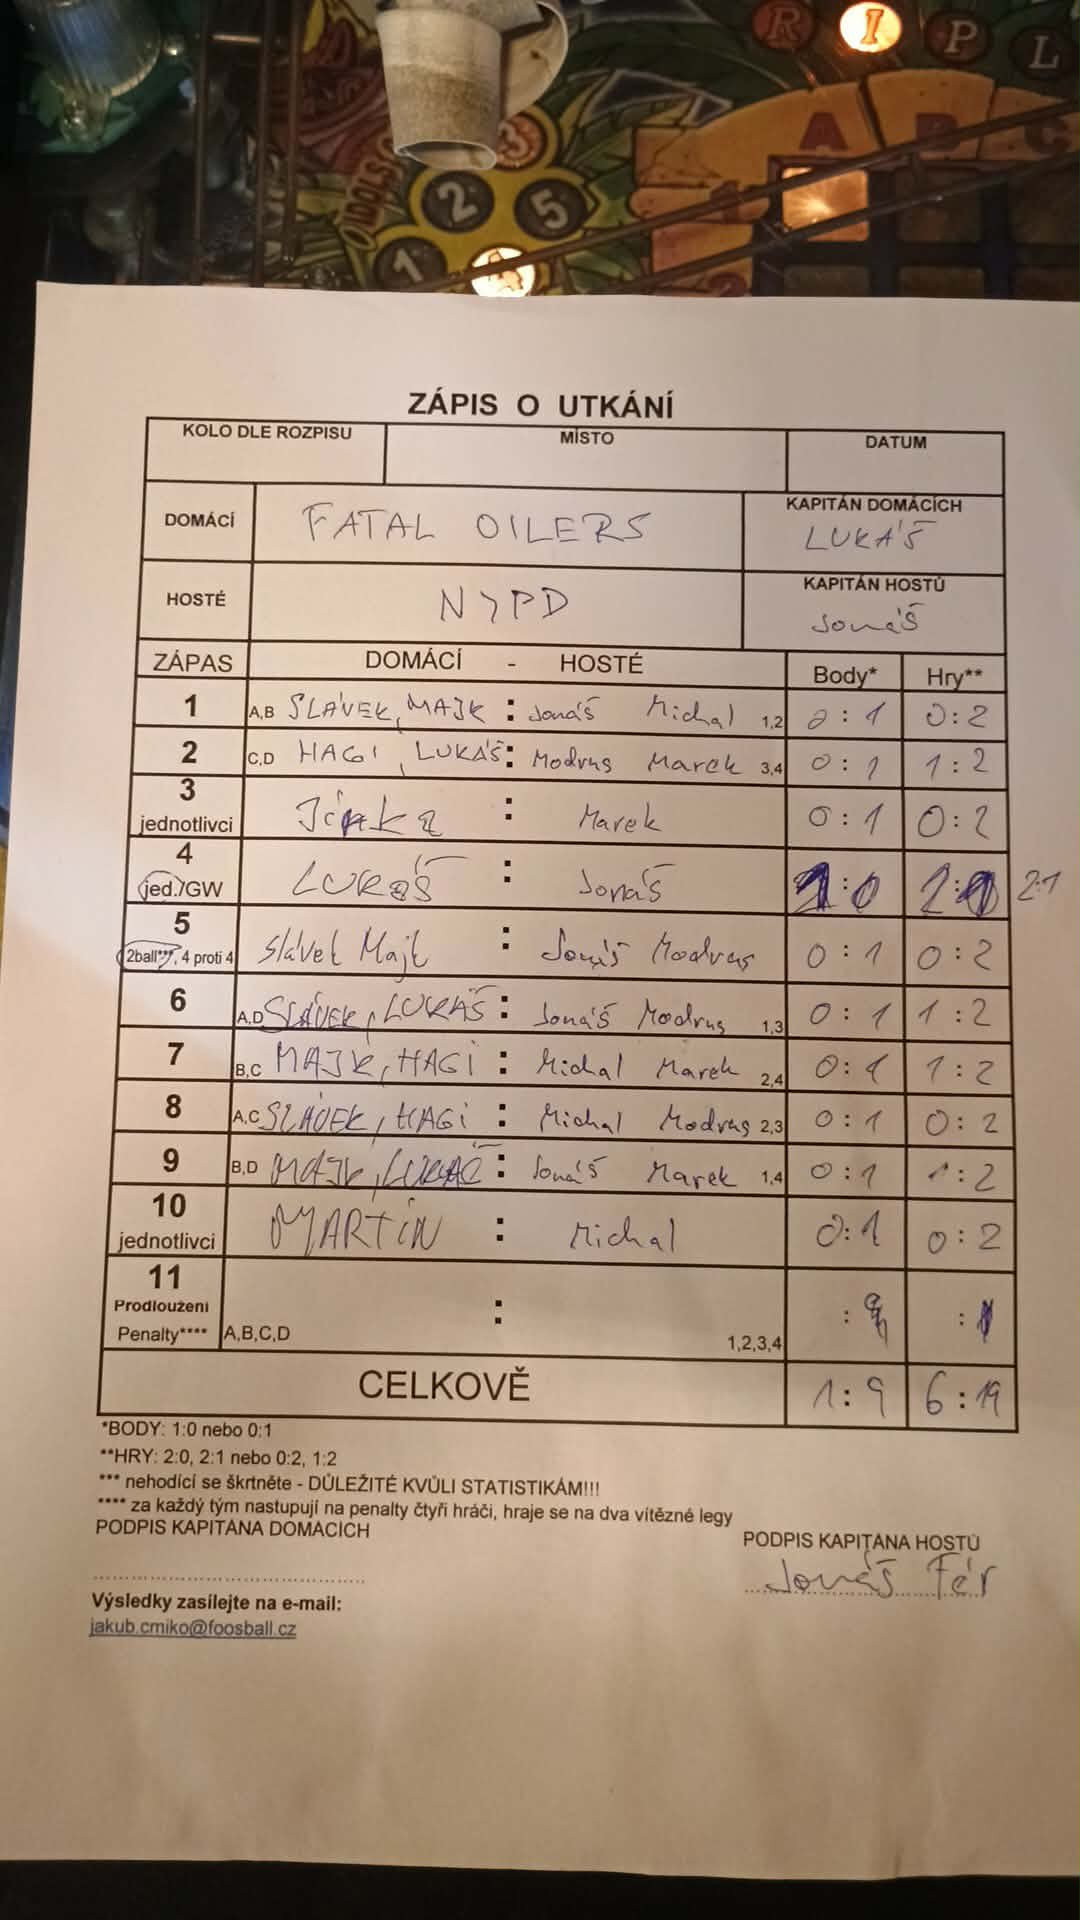 R I P L
A B C
3
2 5
1 4
ZÁPIS O UTKÁNÍ
KOLO DLE ROZPISU MÍSTO DATUM
DOMÁCÍ FATAL OILERS KAPITÁN DOMÁCÍCH
LUKÁŠ
HOSTÉ NYPD KAPITÁN HOSTŮ
Jonáš
ZÁPAS DOMÁCÍ - HOSTÉ Body* Hry**
1 A,B SLÁVEK, MAJK : Jonáš Michal 1,2 0:1 0:2
2 C,D HAGI, LUKÁŠ : Modrus Marek 3,4 0:1 1:2
3 jednotlivci Jirka : Marek 0:1 0:2
4 jed./GW LUKÁŠ : Jonáš 1:0 2:1 2:1
5 2ball***, 4 proti 4 Slávek Majk : Jonáš Modrus 0:1 0:2
6 A,D SLÁVEK, LUKÁŠ : Jonáš Modrus 1,3 0:1 1:2
7 B,C MAJK, HAGI : Michal Marek 2,4 0:1 1:2
8 A,C SLÁVEK, HAGI : Michal Modrus 2,3 0:1 0:2
9 B,D MAJK, LUKÁŠ : Jonáš Marek 1,4 0:1 1:2
10 jednotlivci MARTIN : Michal 0:1 0:2
11
Prodloužení : : :
Penalty**** A,B,C,D 1,2,3,4
CELKOVĚ 1:9 6:19
*BODY: 1:0 nebo 0:1
**HRY: 2:0, 2:1 nebo 0:2, 1:2
*** nehodící se škrtněte - DŮLEŽITÉ KVŮLI STATISTIKÁM!!!
**** za každý tým nastupují na penalty čtyři hráči, hraje se na dva vítězné legy
PODPIS KAPITÁNA DOMÁCÍCH PODPIS KAPITÁNA HOSTŮ
Jonáš Fér
Výsledky zasílejte na e-mail:
jakub.cmiko@foosball.cz